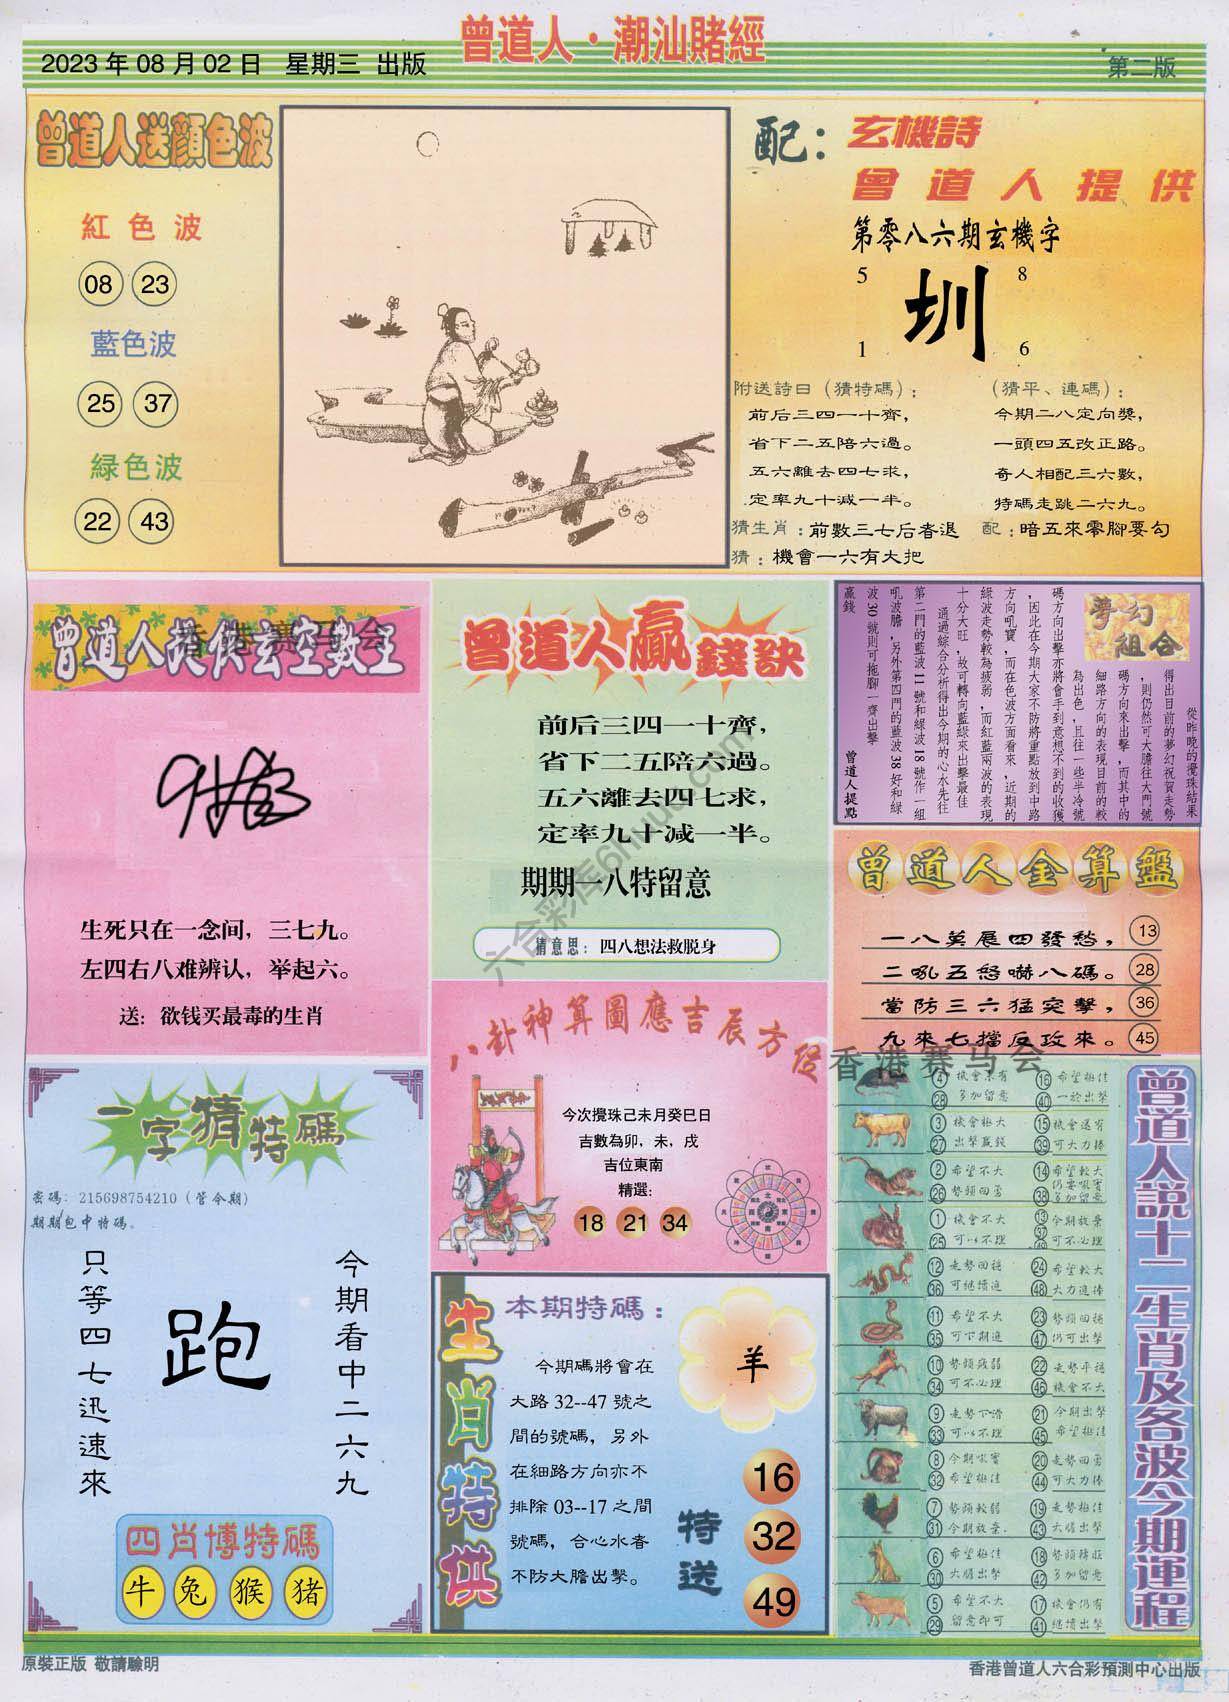 曾道人·潮汕賭經
2023 年 08 月 02 日 星期三 出版
第二版
曾道人送顏色波
紅色波
08 23
藍色波
25 37
緑色波
22 43
配：玄機詩
曾道人提供
第零八六期玄機字
5 8
圳
1 6
附送詩曰（猜特碼）：
前后三四一十齊，
省下二五陪六過。
五六離去四七求，
定率九十減一半。
（猜平、連碼）：
今期二八定向獎，
一頭四五改正路。
奇人相配三六數，
特碼走跳二六九。
猜生肖：前數三七后春退
配：暗五來零腳要勾
猜：機會一六有大把
曾道人提供玄空數王
香港赛马会
生死只在一念间，三七九。
左四右八难辨认，举起六。
送：欲钱买最毒的生肖
曾道人贏錢訣
前后三四一十齊，
省下二五陪六過。
五六離去四七求，
定率九十減一半。
期期一八特留意
猜意思：四八想法救脱身
夢幻組合
從昨晚的攪珠結果
得出目前的夢幻祝賀走勢
，則仍然可大膽往大門號
碼方向來出擊，而其中的
細路方向的表現目前的較
為出色，且往一些半冷號
碼方向出擊亦將會手到意想不到的收獲
，因此在今期大家不防將重點放到中路
方向吼寶，而在色波方面看來，近期的
綠波走勢較為疲弱，而紅藍兩波的表現
十分大旺，故可轉向藍綠來出擊最佳
通過綜合分析得出今期的心水先往
第二門的藍波 11 號和綠波 18 號作一組
吼波膽，另外第四門的藍波 38 好和綠
波 30 號則可拖腳一齊出擊
贏錢
曾道人提點
曾道人金算盤
一八英展四發愁， 13
二吼五怒嚇八碼。 28
當防三六猛突擊， 36
九來七擋反攻來。 45
香港赛马会
六合彩库6hvuu.com
八卦神算圖應吉辰方位
今次攪珠己未月癸巳日
吉數為卯，未，戌
吉位東南
精選:
18 21 34
一字猜特碼
密碼: 215698754210（管今期）
期期包中特碼。
今期看中二六九
跑
只等四七迅速來
四肖博特碼
牛 兔 猴 猪
生肖特供
本期特碼：
羊
今期碼將會在
大路 32--47 號之
間的號碼，另外
在細路方向亦不
排除 03--17 之間
號碼，合心水春
不防大膽出擊。
特送
16
32
49
曾道人説十二生肖及各波今期運程
4 機會未有 16 希望極佳
28 多加留意 40 一於出擊
3 機會極大 15 機會還有
27 出擊贏錢 39 可大力捧
2 希望不大 14 希望較大
26 勢頭回勇 38 仍要吼實多加留意
1 機會不大 13 今期放棄
25 可以不理 37 49 可不必理
12 走勢回穩 24 希望較大
36 可繼續追 48 大力追捧
11 希望不大 23 勢頭回穩
35 可下期追 47 仍可出擊
10 勢頭疲弱 22 走勢平穩
34 可不必理 46 機會不大
9 走勢下滑 21 今期出擊
33 可以不理 45 希望極佳
8 今期吼實 20 走勢回勇
32 希望極佳 44 可大力捧
7 勢頭較弱 19 走勢極佳
31 今期放棄. 43 大膽出擊
6 希望極佳 18 勢頭轉旺
30 大膽出擊 42 多加留意
5 希望不大 17 機會仍有
29 留意即可 41 繼續出擊
原裝正版 敬請驗明
香港曾道人六合彩預測中心出版